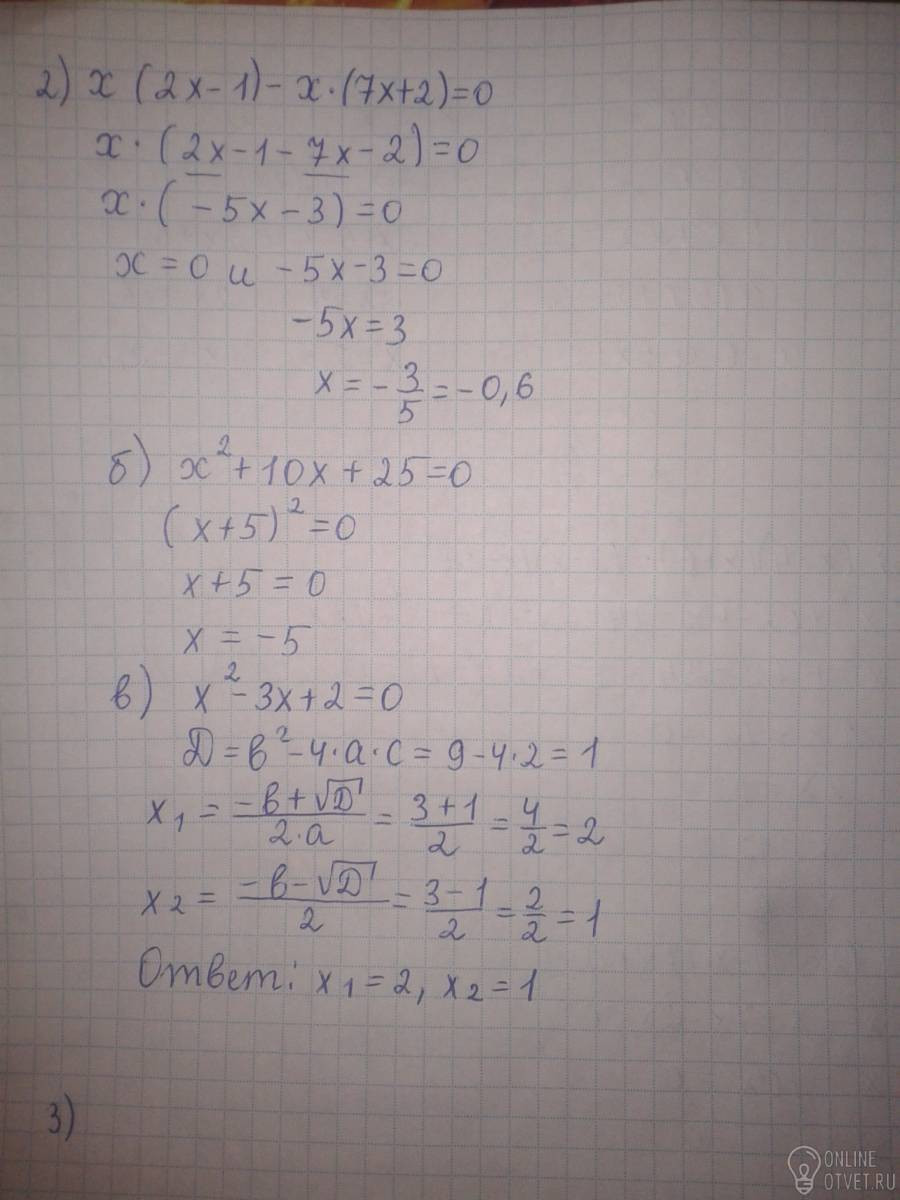 2) x (2x-1)- x·(7x+2)=0
x·(2x-1-7x-2)=0
x·(-5x-3)=0
x=0 и -5x-3=0
-5x=3
x=-3/5=-0,6
б) x²+10x+25=0
(x+5)²=0
x+5=0
x=-5
в) x²-3x+2=0
D=b²-4·a·c=9-4·2=1
x₁=(-b+√D)/(2·a)=(3+1)/2=4/2=2
x₂=(-b-√D)/2=(3-1)/2=2/2=1
Ответ: x₁=2, x₂=1
3)
ONLINE
OTVET.RU